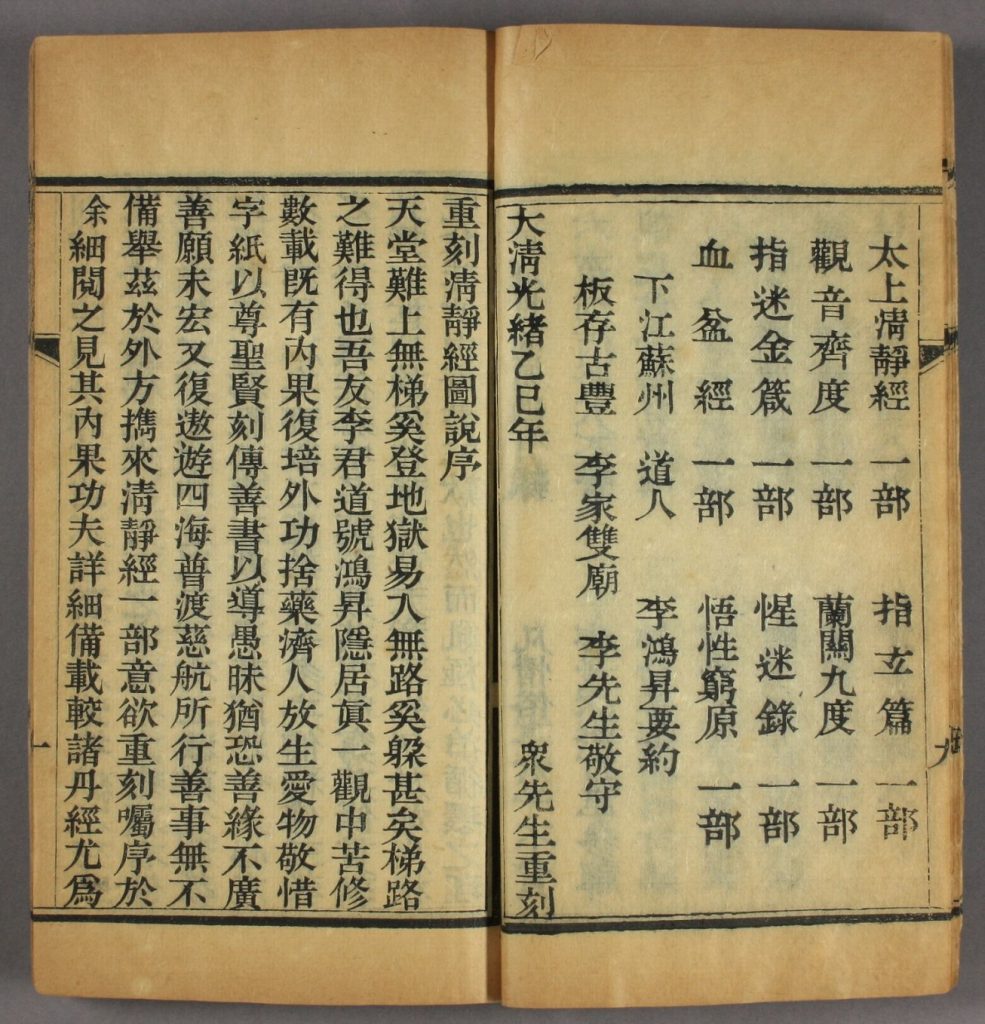 太上清靜經 一部 指玄篇 一部
觀音齊度 一部 蘭關九度 一部
指迷金箴 一部 惺迷錄 一部
血盆經 一部 悟性窮原 一部
下江蘇州 道人 李鴻昇要約
板存古豐 李家雙廟 李先生敬守
大清光緒乙巳年 衆先生重刻
重刻清靜經圖說序
天堂難上無梯奚登地獄易入無路奚躱甚矣梯路
之難得也吾友李君道號鴻昇隱居眞一觀中苦修
數載既有內果復培外功捨藥濟人放生愛物敬惜
字紙以尊聖賢刻傳善書以導愚昧猶恐善緣不廣
善願未宏又復遨遊四海普渡慈航所行善事無不
備舉茲於外方擕來清靜經一部意欲重刻囑序於
余細閱之見其內果功夫詳細備載較諸丹經尤爲
一